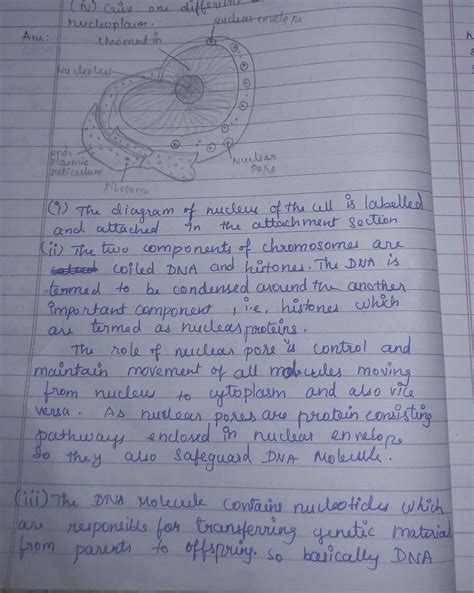 (iv) Give one difference
nucleoplasm.
nuclear envelope
Ans:
chromatin
Nucleolus
endo
plasmic
reticulum
Ribosom
Nuclear
Pore
(i) The diagram of nucleus of the cell is labelled
and attached in the attachment section
(ii) The two components of chromosomes are
coiled DNA and histones. The DNA is
termed to be condensed around the another
important component, i.e, histones which
are termed as nuclear proteins.
The role of nuclear pore is control and
maintain movement of all molecules moving
from nucleus to cytoplasm and also vice
versa. As nuclear pores are protein consisting
pathways enclosed in nuclear envelope
so they also safeguard DNA Molecule.
(iii) The DNA Molecule contains nucleotides which
are responsible for transferring genetic material
from parents to offspring. so basically DNA